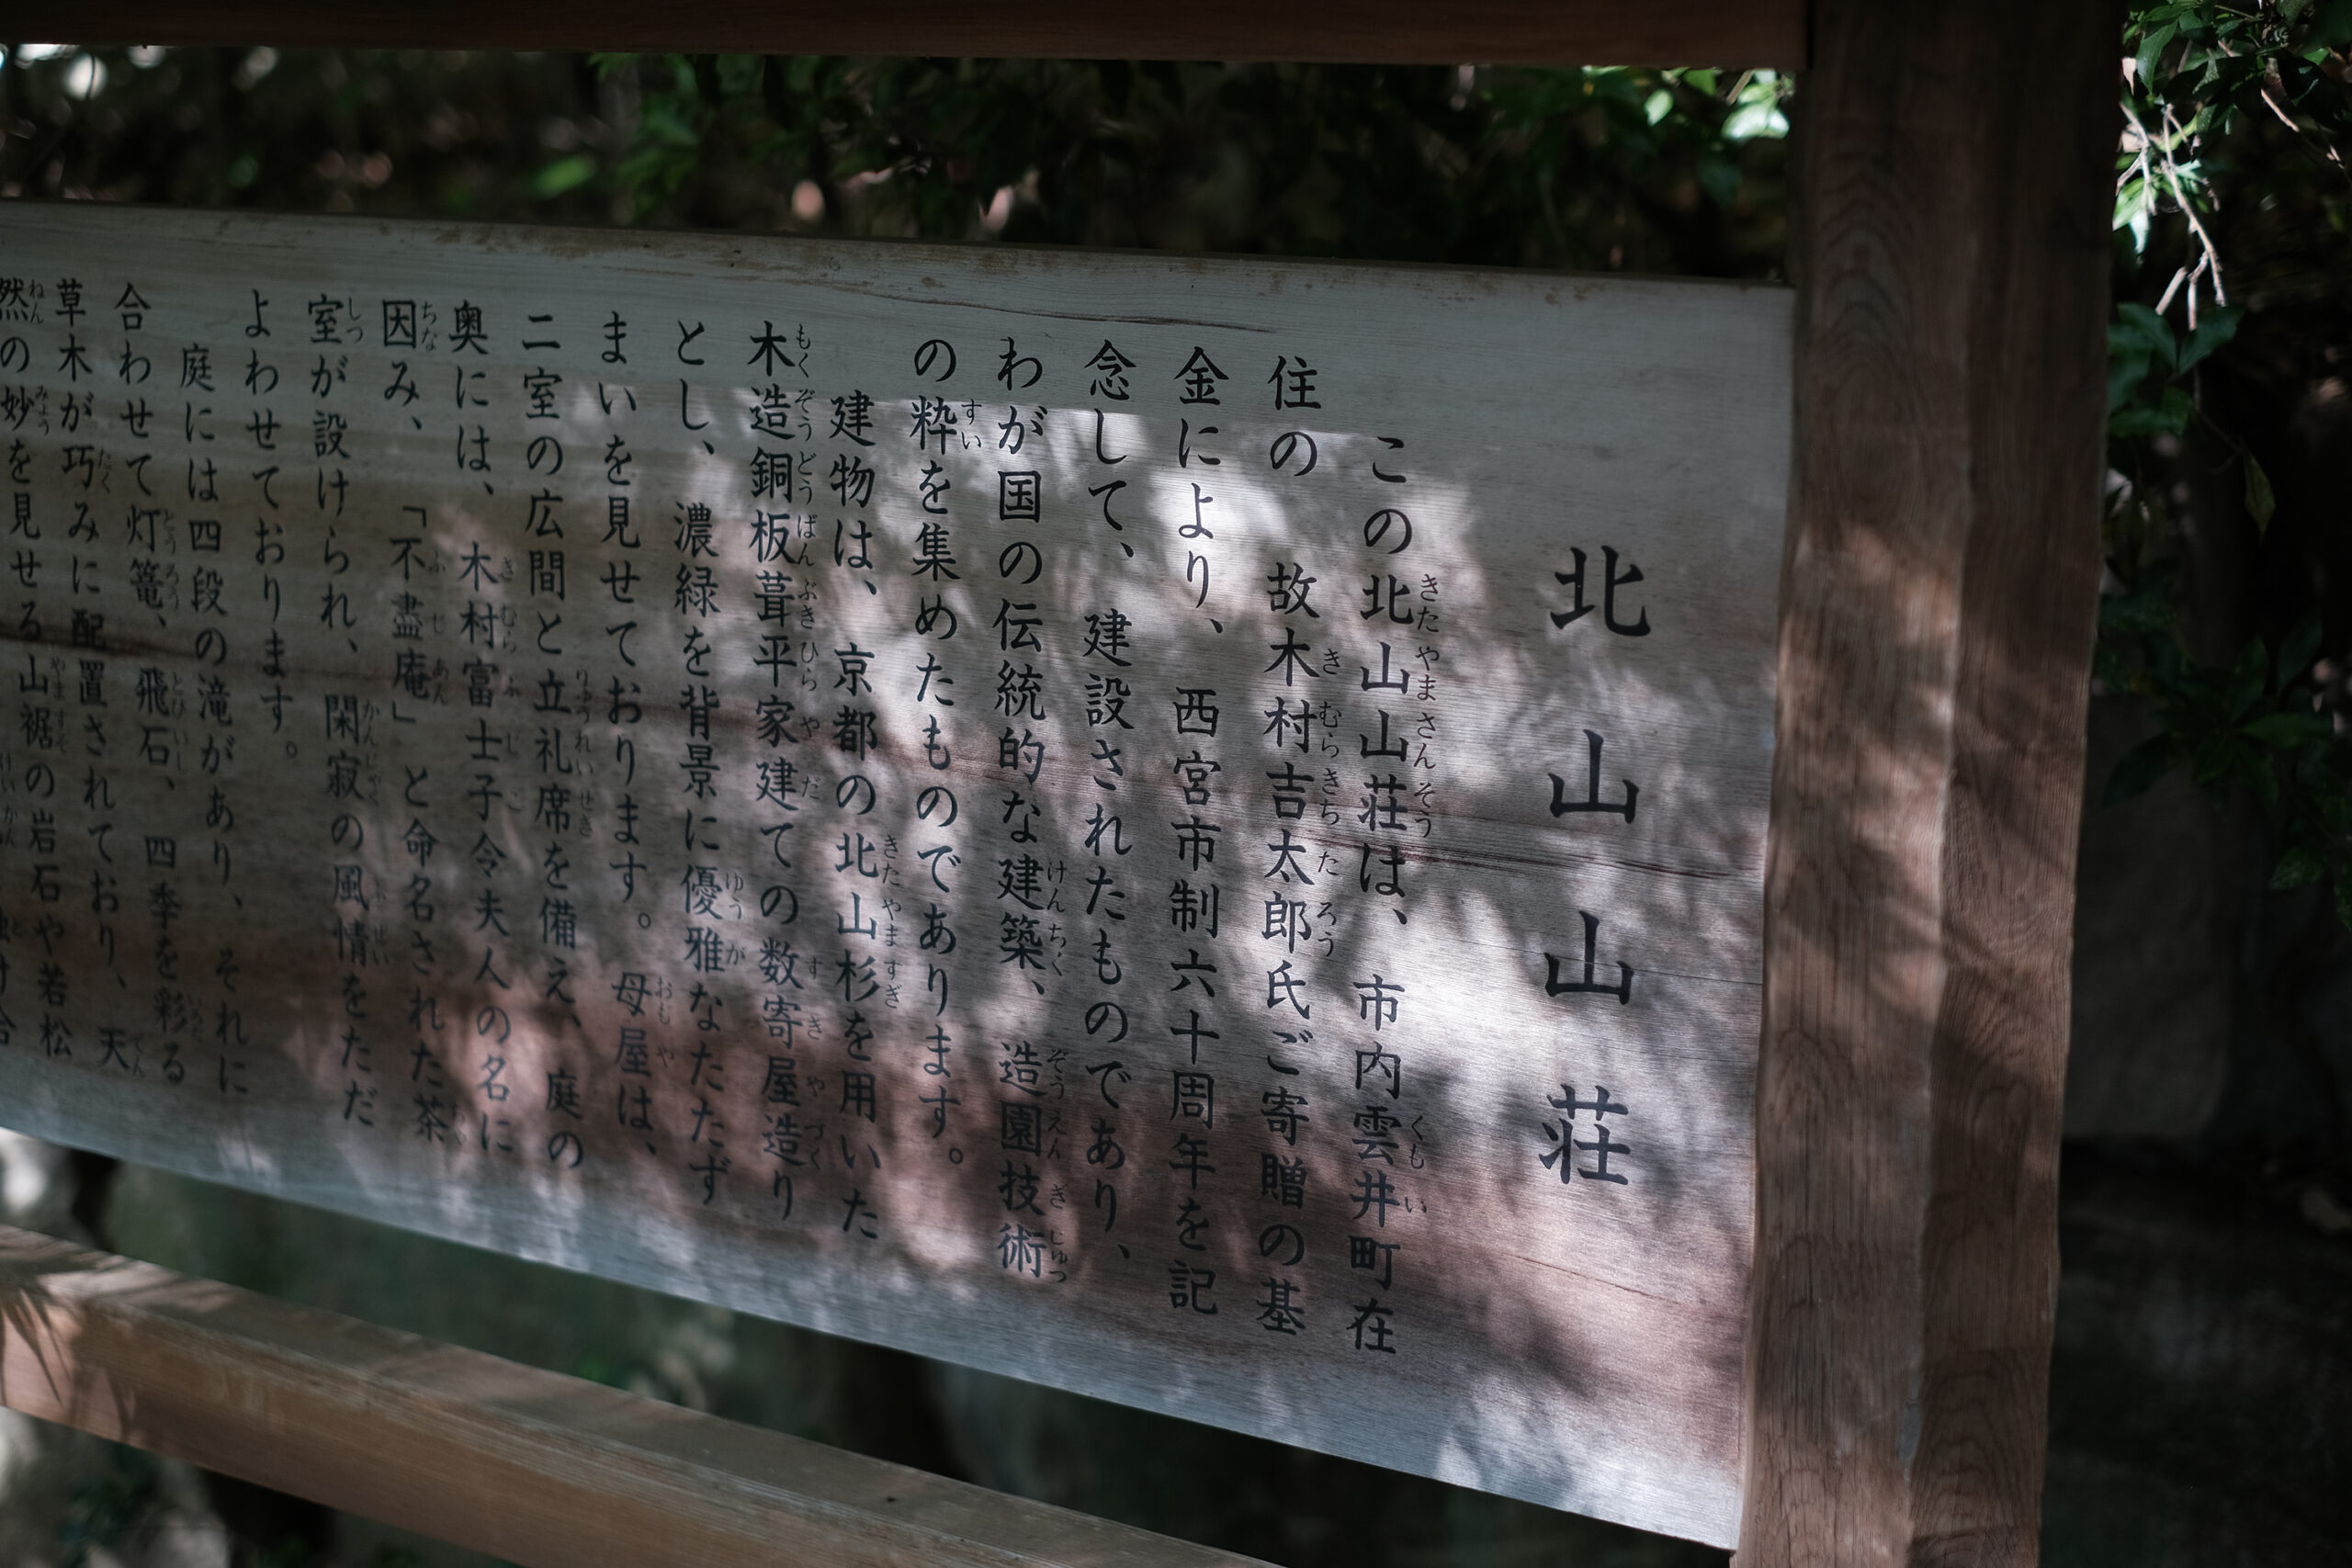 北山山荘
この北山山荘は、市内雲井町在
住の 故木村吉太郎氏ご寄贈の基
金により、西宮市制六十周年を記
念して、建設されたものであり、
わが国の伝統的な建築、造園技術
の粋を集めたものであります。
建物は、京都の北山杉を用いた
木造銅板葺平家建ての数寄屋造り
とし、濃緑を背景に優雅なたたず
まいを見せております。母屋は、
二室の広間と立礼席を備え、庭の
奥には、木村富士子令夫人の名に
因み、「不盡庵」と命名された茶
室が設けられ、閑寂の風情をただ
よわせております。
庭には四段の滝があり、それに
合わせて灯篭、飛石、四季を彩る
草木が巧みに配置されており、天
然の妙を見せる山裾の岩石や若松